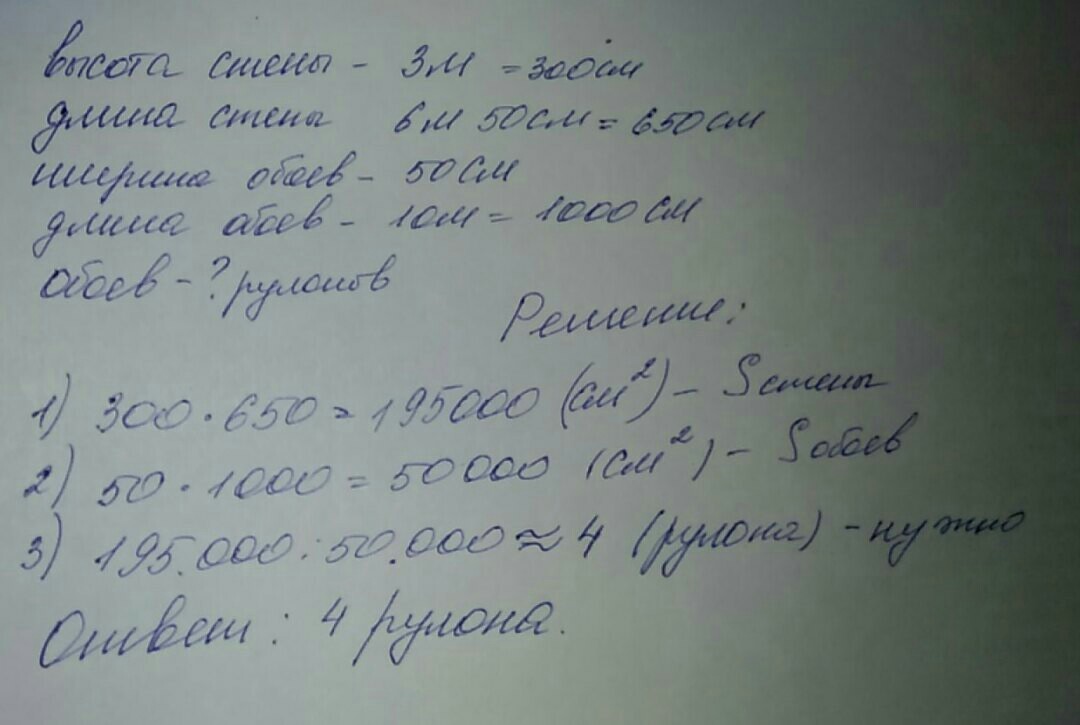 высота стены - 3м = 300см
длина стены 6м 50см = 650см
ширина обоев - 50см
длина обоев - 10м = 1000см
обоев - ? рулонов
Решение:
1) 300 · 650 = 195000 (см²) - Sстены
2) 50 · 1000 = 50000 (см²) - Sобоев
3) 195.000 : 50.000 ≈ 4 (рулона) - нужно
Ответ: 4 рулона.